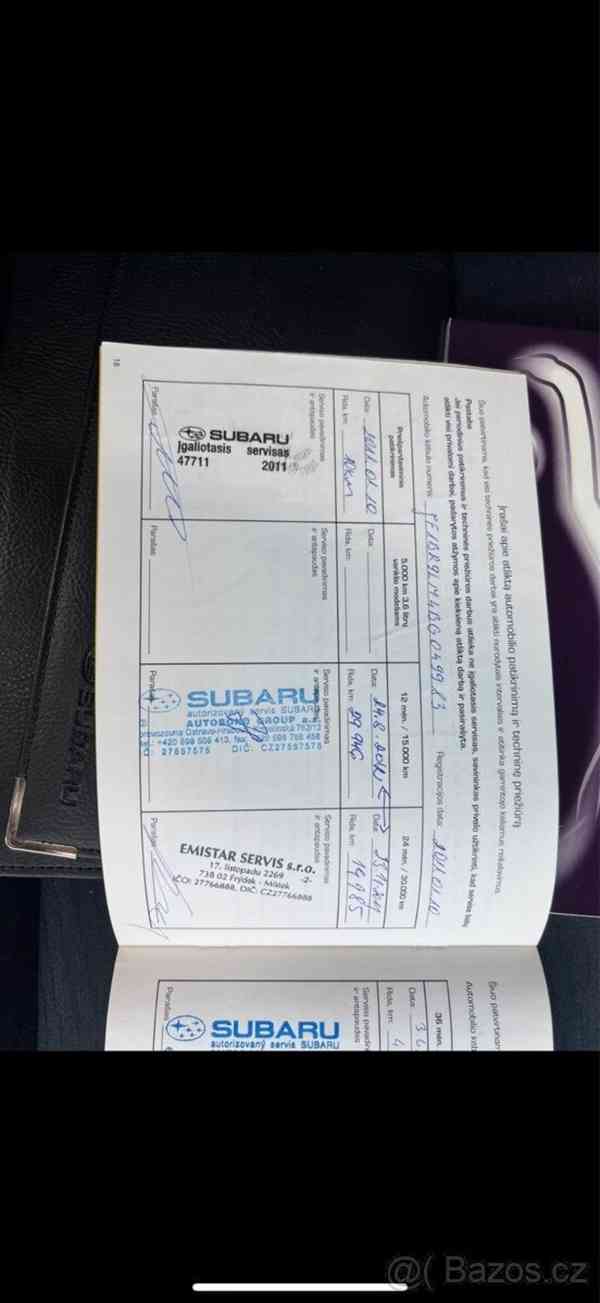 18
Įrašai apie atliktą automobilio patikrinimą ir techninę priežiūrą
Šiuo patvirtinama, kad visi techninės priežiūros darbai yra atlikti nurodytais intervalais ir atitinka gamintojo keliamus reikalavimus.
Pastaba
Jei periodinius patikrinimus ir techninės priežiūros darbus atlieka ne įgaliotasis servisas, savininkas privalo užtikrinti, kad
atlikti visi privalomi darbai, padarytos atžymos apie kiekvieną atliktą darbą ir pasirašyta.
Automobilio kėbulo numeris
Registracijos data: 2011.01.10
Priešpardaviminis
patikrinimas
Data: 2011.01.10
Rida, km: 10km
Serviso pavadinimas
ir antspaudas
SUBARU
Įgaliotasis servisas
47711 2011
Parašas:
5.000 km 3,6 litrų
variklio modeliams
Data:
Rida, km:
Serviso pavadinimas
ir antspaudas
Parašas:
12 mėn. / 15 000 km
Data:
Rida, km: 29 946
Serviso pavadinimas
ir antspaudas
SUBARU
autorizovaný servis SUBARU
AUTOBOND GROUP a.s.
27557575 DIČ: CZ27557575
Parašas:
24 mėn. / 30.000 km
Data:
Rida, km: 19 985
Serviso pavadinimas
ir antspaudas
EMISTAR SERVIS s.r.o.
17. listopadu 2269 -2-
738 02 Frýdek - Místek
IČO: 27766888, DIČ: CZ27766888
Parašas:
Šiuo patvirtinam
Automobilio kėb
36 mėn.
Data:
Rida, km: 4
Serviso pavadin
ir antspaudas
SUBARU
autorizovaný servis SUBARU
Parašas:
SUBARU
Bazos.cz